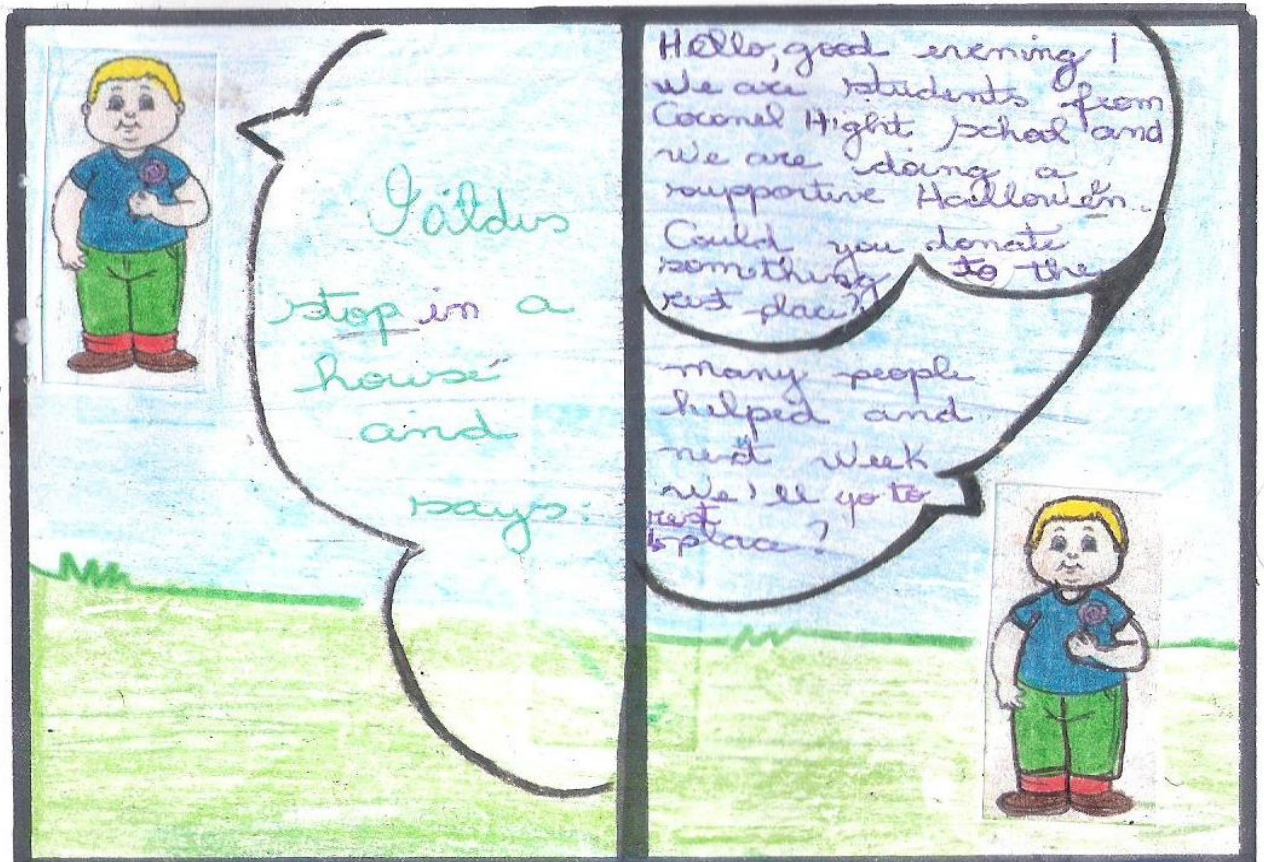 stop in a
house
and
says:
Hello, good evening!
We are students from
Coronel Hight school and
we are doing a
supportive
Could you donate
something to the
rest place?
many people
helped and
next week
we'll go to
rest
place!